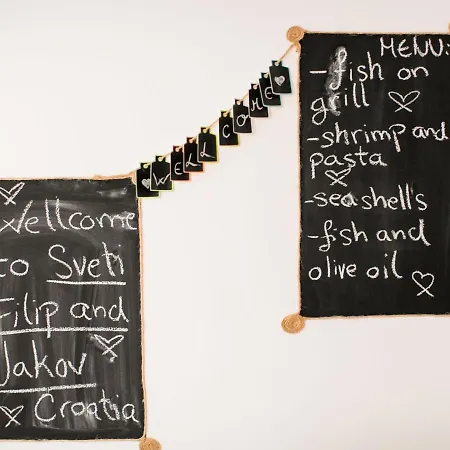 WELLCOME
MENU:
-fish on
grill
-shrimp and
pasta
-seashells
-fish and
olive oil
Wellcome
to Sveti
Filip and
Jakov
Croatia